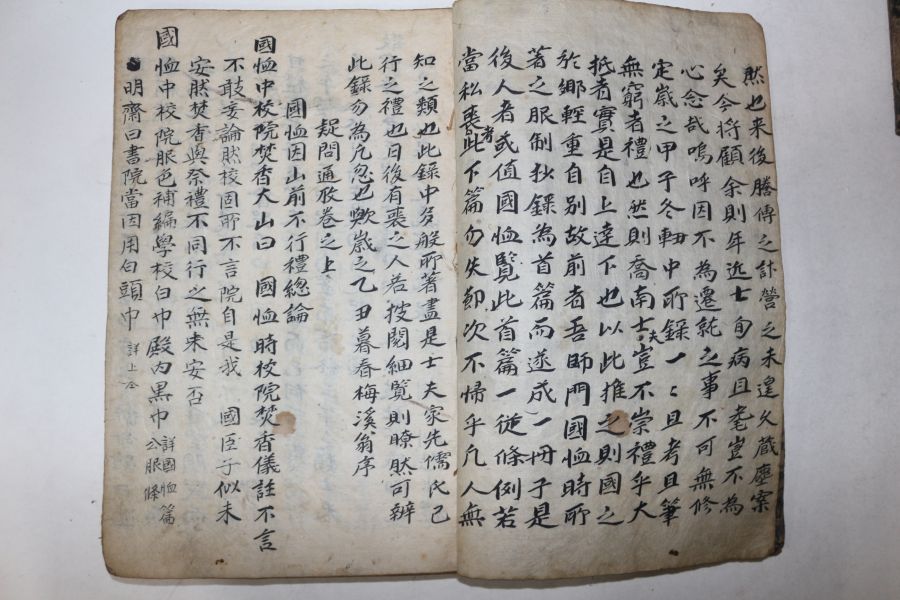 然也来後騰傳之計營之未遑久蔵塵案
矣今将顧余則年迄七旬病且耄豈不為
心念哉嗚呼因不為遷就之事不可無修
定歳之甲子冬中所錄一〻且考且筆
無窮者禮也然則喬南士夫豈不崇禮乎大
抵著實是自上達下也以此推之則國之
於鄉輕重自别故前者吾師門國恤時所
著之服制抄錄為首篇而遂成一冊子是
後人者或值國恤覧此首篇一從條例若
當私喪者此下篇勿失節次不帰乎凡人無
知之類也此錄中多般所著盡是士夫家先儒氏已
行之禮也日後有喪之人若披閱細覧則瞭然可辦
此錄勿為凡忽也歟歳之乙丑暮春梅溪翁序
疑問通攷卷之上
國恤因山前不行禮總論
國恤中校院焚香大山曰 國恤時校院焚香儀註不言
不敢妄論然校固所不言院自是我 國臣子似未
安然焚香與祭禮不同行之無未安否
國恤中校院服色補編學校白巾殿内黒巾 詳國恤篇公服條
明齋曰書院當因用白頭巾 詳上仝